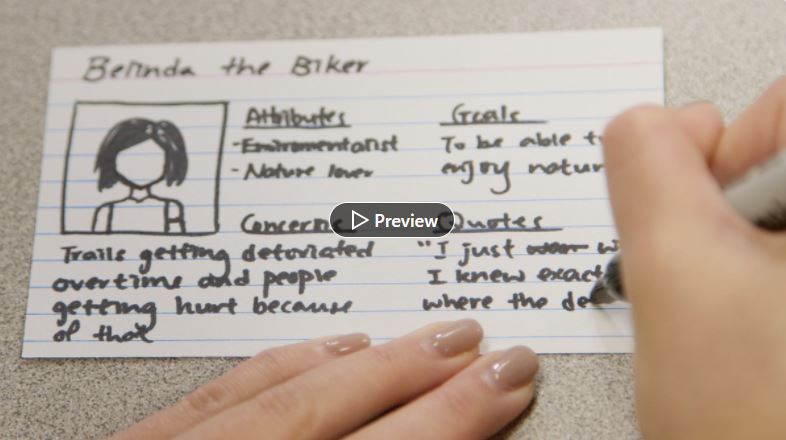 Belinda the Biker
Attributes
- Enviromentalist
- Nature lover
Goals
To be able t
enjoy natur
Concerns
Trails getting detoriated
overtime and people
getting hurt because
of that
Quotes
"I just w
I knew exact
where the de
Preview